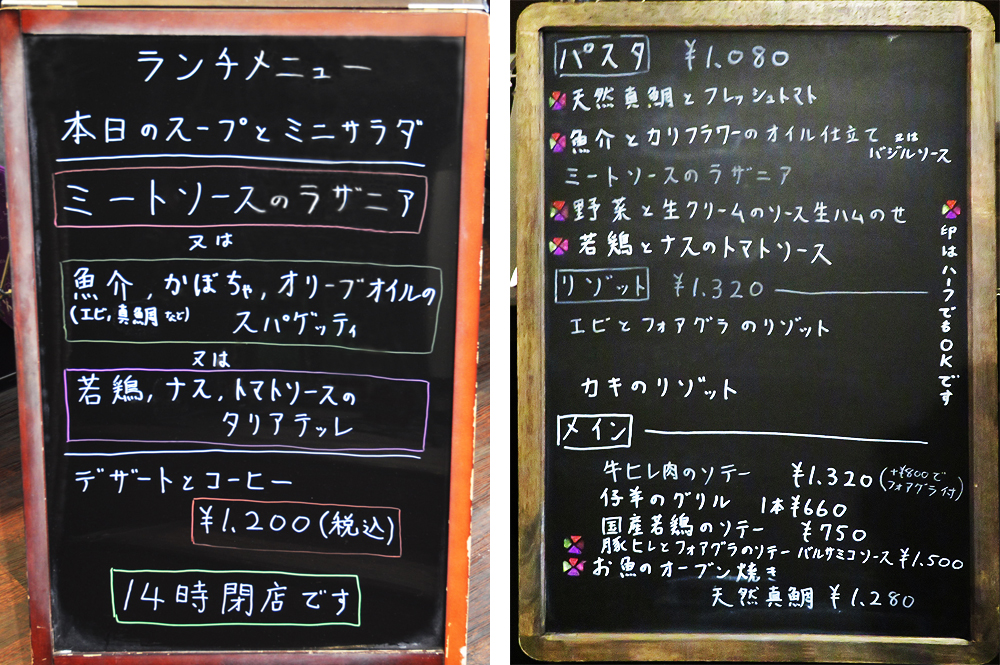 ランチメニュー
本日のスープとミニサラダ
ミートソースのラザニア
又は
魚介,かぼちゃ,オリーブオイルの
(エビ,真鯛など)
スパゲッティ
又は
若鶏,ナス,トマトソースの
タリアテッレ
デザートとコーヒー
¥1.200(税込)
14時閉店です
パスタ ¥1.080
天然真鯛とフレッシュトマト
魚介とカリフラワーのオイル仕立て 又は
バジルソース
ミートソースのラザニア
野菜と生クリームのソース生ハムのせ
若鶏とナスのトマトソース
リゾット ¥1.320
エビとフォアグラのリゾット
カキのリゾット
メイン
牛ヒレ肉のソテー ¥1.320(+¥800で
フォアグラ付)
仔羊のグリル 1本¥660
国産若鶏のソテー ¥750
豚ヒレとフォアグラのソテー バルサミコソース ¥1.500
お魚のオーブン焼き
天然真鯛 ¥1.280
印はハーフでもOKです